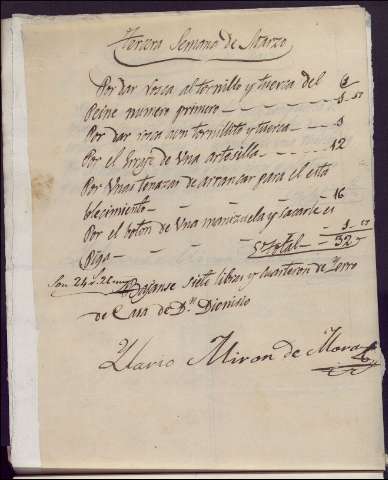 Tercera Semana de Marzo
Por dar rosca al tornillo y tuerca del
Peine numero primero
Por dar rosca a un tornillito y tuerca
Por el de Una artesilla 12
Por Unas tenazas de arrancar para el esta
blecimiento 16
Por el boton de Una manzuela y sacarle el
total 32
Bajanse siete libras y cuarteron de Yerro
de Casa de Dn Dionisio
Ylario Miron de Mora